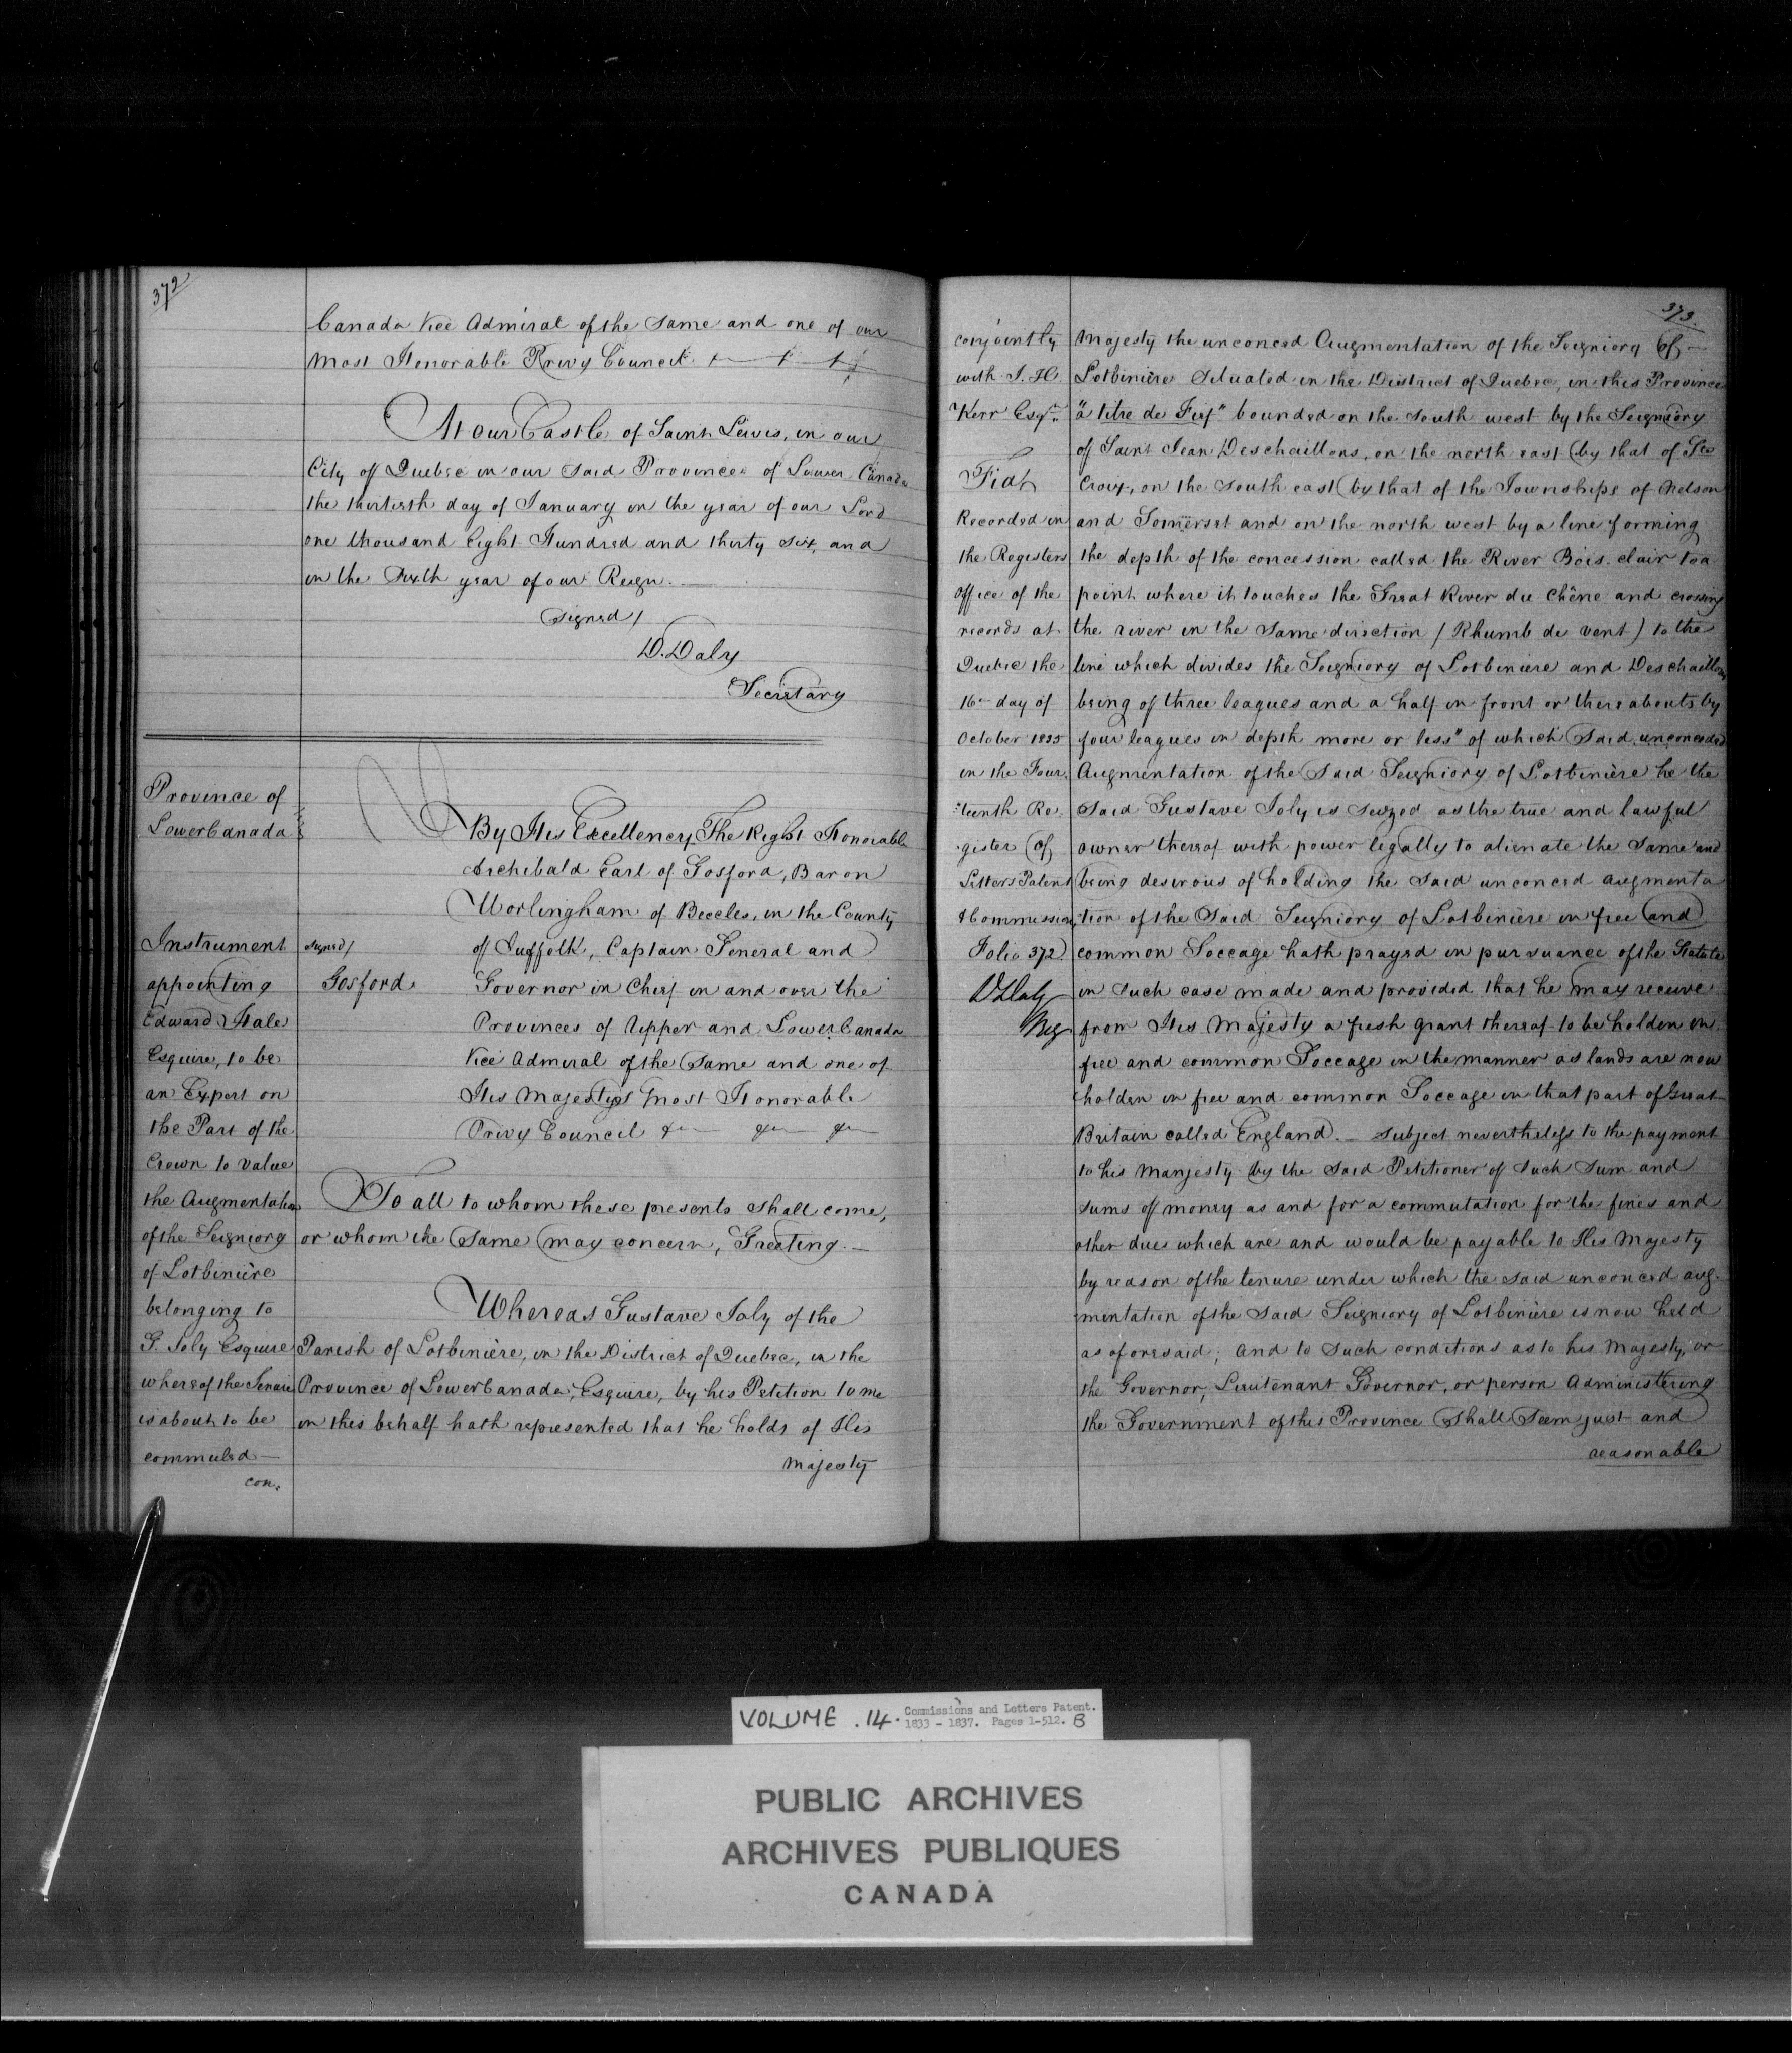 372
Canada Vice Admiral of the Same and one of our
Most Honorable Privy Council
At our Castle of Saint Lewis, in our
City of Quebec in our said Province of Lower Canada
the thirtieth day of January in the year of our Lord
one thousand Eight Hundred and thirty Six, and
in the Sixth year of our Reign. —
Signed/
D. Daly
Secretary
Province of
Lower Canada
Instrument
appointing
Edward Hale
Esquire, to be
an Expert on
the Part of the
Crown to value
the Augmentation
of the Seigniory
of Lotbinière
belonging to
G. Joly Esquire
whereof the Tenure
is about to be
commuted —
con:
signed/
Gosford
By His Excellency The Right Honorable
Archibald Earl of Gosford, Baron
Worlingham of Beccles, in the County
of Suffolk, Captain General and
Governor in Chief in and over the
Provinces of Upper and Lower Canada
Vice Admiral of the Same and one of
His Majesty's most Honorable
Privy Council &c &c &c
To all to whom these presents shall come,
or whom the Same may concern, Greeting. —
Whereas Gustave Joly of the
Parish of Lotbinière, in the District of Quebec, in the
Province of Lower Canada, Esquire, by his Petition to me
in this behalf hath represented that he holds of His
Majesty
373.
conjointly
with J. H.
Kerr Esqr.
Fiat
Recorded in
the Registers
office of the
records at
Quebec the
16th day of
October 1835
in the Four:
:teenth Re:
:gister of
Letters Patent
& Commission,
Folio 372
D Daly
Reg
Majesty the unconced Augmentation of the Seigniory of —
Lotbinière Situated in the District of Quebec, in this Province
"à titre de Fief" bounded on the South west by the Seigniory
of Saint Jean Deschaillons, on the north east by that of Ste
Croix, on the South east by that of the Townships of Nelson
and Somerset and on the north west by a line forming
the depth of the concession called the River Bois-clair to a
point where it touches the Great River du Chêne and crossing
the river in the Same direction / Rhumb de vent / to the
line which divides the Seigniory of Lotbiniere and Deschaillons
being of three leagues and a half in front or thereabouts by
four leagues in depth more or less" of which Said unconceded
Augmentation of the Said Seigniory of Lotbinière he the
Said Gustave Joly is Seized as the true and lawful
owner thereof with power legally to alienate the Same and
being desirous of holding the Said unconced augmenta
:tion of the Said Seigniory of Lotbinière in free and
common Soccage hath prayed in pursuance of the Statute
in Such case made and provided that he may receive
from His Majesty a fresh grant thereof to be holden in
free and common Soccage in the manner as lands are now
holden in free and common Soccage in that part of Great
Britain called England. — Subject nevertheless to the payment
to his Manjesty by the Said Petitioner of Such Sum and
Sums of money as and for a commutation for the fines and
other dues which are and would be payable to His Majesty
by reason of the tenure under which the said unconced aug-
mentation of the Said Seigniory of Lotbinière is now held
as aforesaid; and to Such conditions as to his Majesty, or
the Governor, Lieutenant Governor, or person Administering
the Government of this Province Shall Seem just and
reasonable
VOLUME . 14. Commissions and Letters Patent.
1833 - 1837. Pages 1-512. B
PUBLIC ARCHIVES
ARCHIVES PUBLIQUES
CANADA